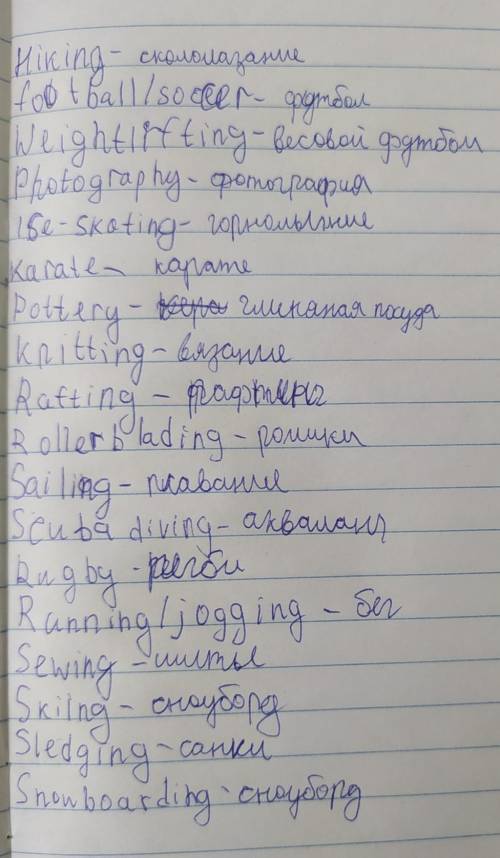 Hiking - скололазание
football/soccer - футбол
Weightlifting - весовой футбол
Photography - фотография
Ice-skating - горнолыжние
Karate - карате
Pottery - глиняная посуда
Knitting - вязание
Rafting - рафтинг
Rollerblading - ролики
Sailing - плавание
Scuba diving - акваланг
Rugby - регби
Running/jogging - бег
Sewing - шитьё
Skiing - сноуборд
Sledging - санки
Snowboarding - сноуборд